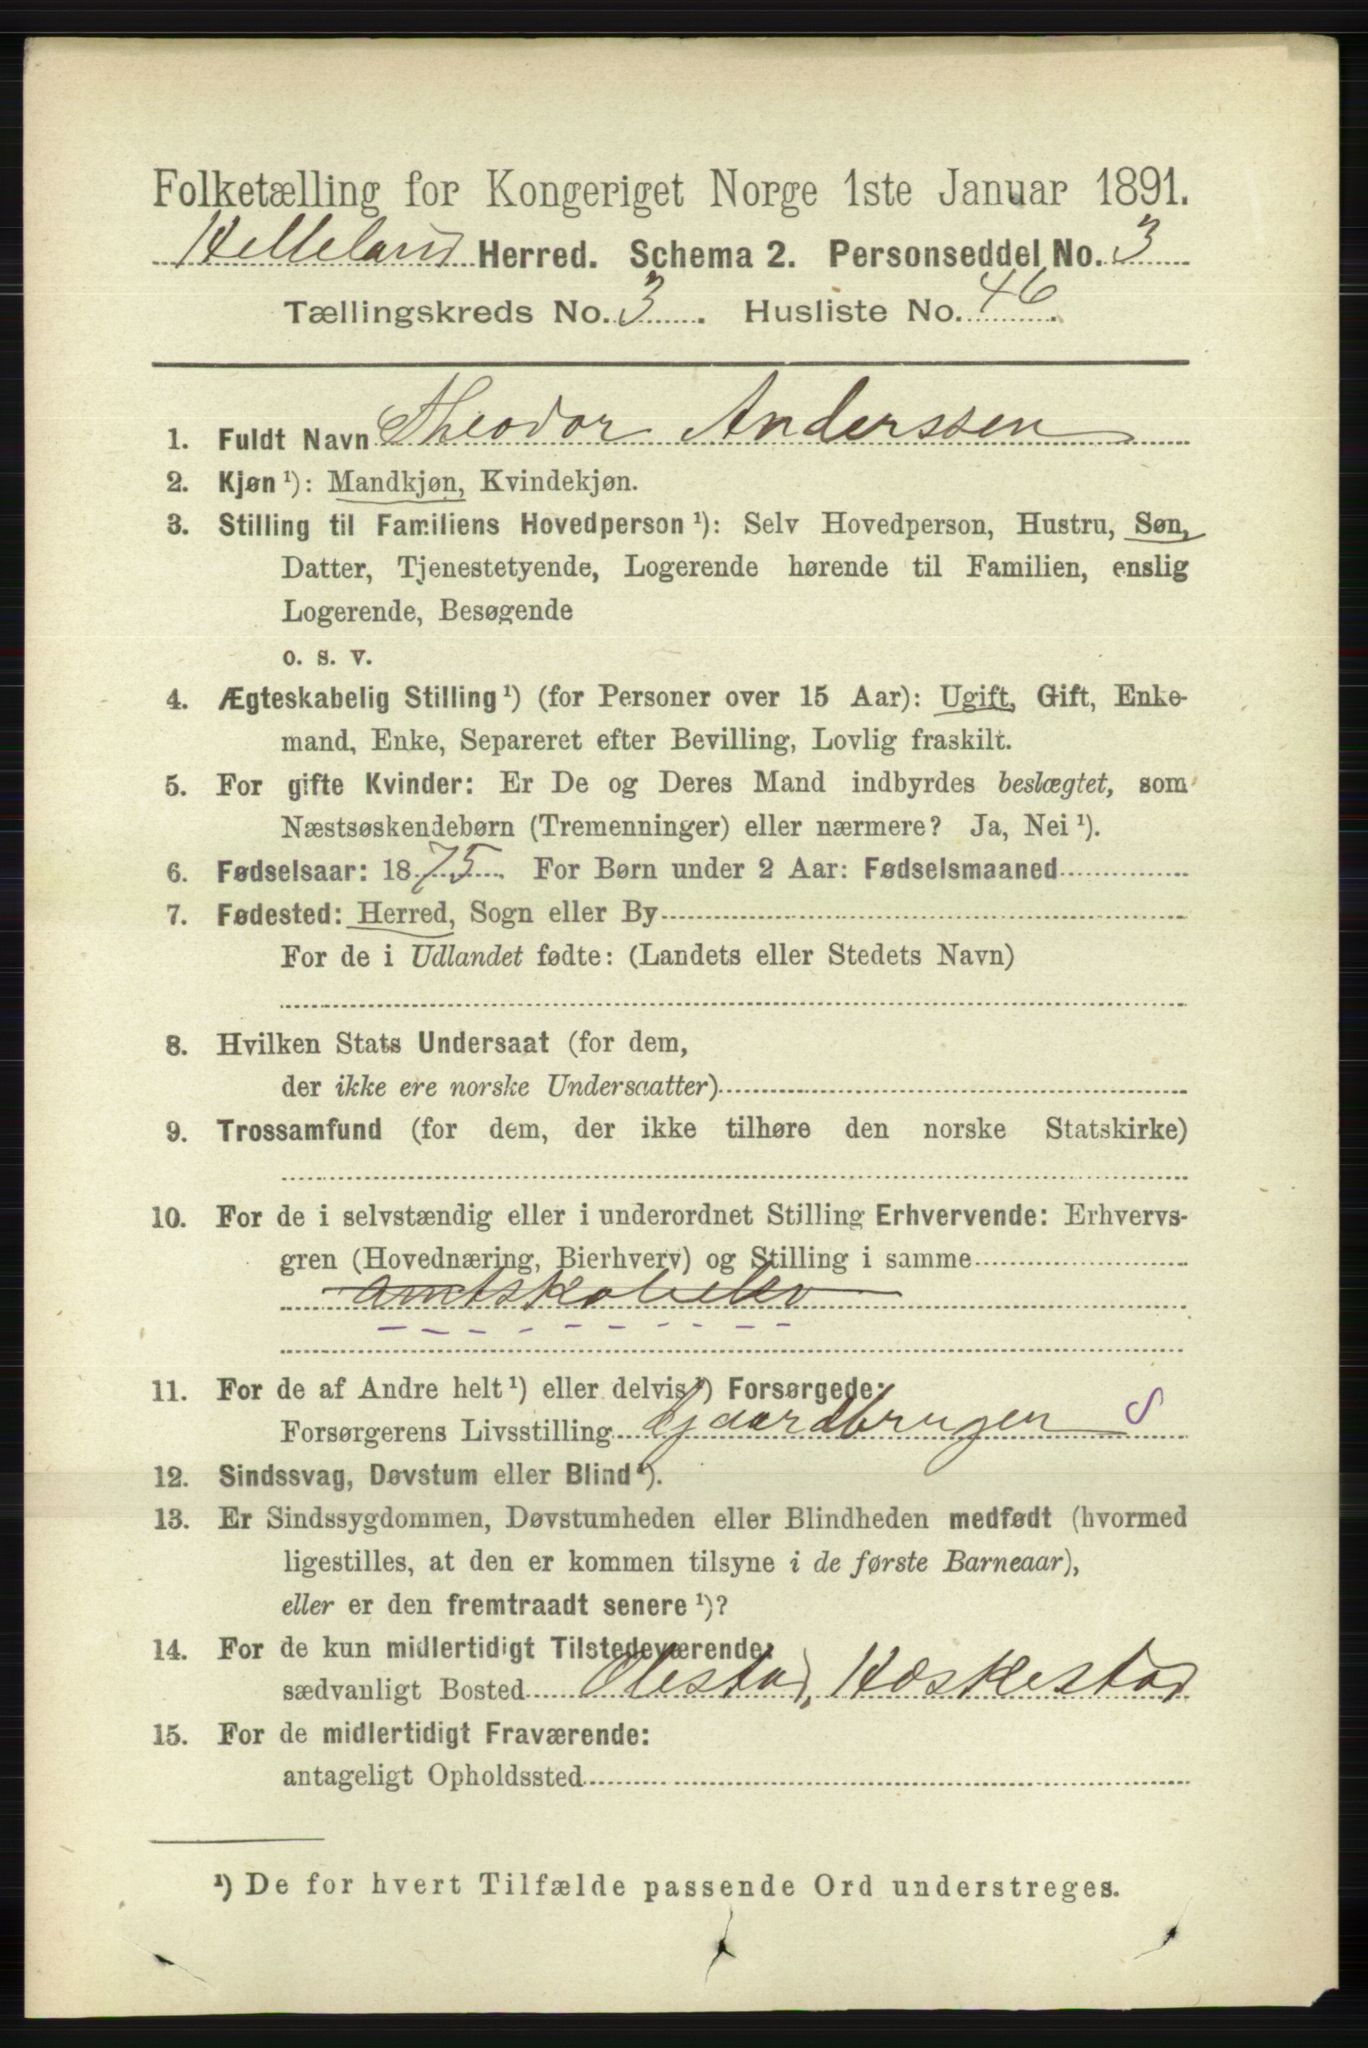 Folketælling for Kongeriget Norge 1ste Januar 1891.
Helleland Herred. Schema 2. Personseddel No. 3
Tællingskreds No. 3. Husliste No. 46.
1. Fuldt Navn Theodor Anderssen
2. Kjøn ¹): Mandkjøn, Kvindekjøn.
3. Stilling til Familiens Hovedperson ¹): Selv Hovedperson, Hustru, Søn,
Datter, Tjenestetyende, Logerende hørende til Familien, enslig
Logerende, Besøgende
o. s. v.
4. Ægteskabelig Stilling ¹) (for Personer over 15 Aar): Ugift, Gift, Enke-
mand, Enke, Separeret efter Bevilling, Lovlig fraskilt.
5. For gifte Kvinder: Er De og Deres Mand indbyrdes beslægtet, som
Næstsøskendebørn (Tremenninger) eller nærmere? Ja, Nei ¹).
6. Fødselsaar: 1875. For Børn under 2 Aar: Fødselsmaaned
7. Fødested: Herred, Sogn eller By
For de i Udlandet fødte: (Landets eller Stedets Navn)
8. Hvilken Stats Undersaat (for dem,
der ikke ere norske Undersaatter)
9. Trossamfund (for dem, der ikke tilhøre den norske Statskirke)
10. For de i selvstændig eller i underordnet Stilling Erhvervende: Erhvervs-
gren (Hovednæring, Bierhverv) og Stilling i samme
amtskolelev
11. For de af Andre helt ¹) eller delvis ¹) Forsørgede:
Forsørgerens Livsstilling Gjaardbrugen S
12. Sindssvag, Døvstum eller Blind ¹).
13. Er Sindssygdommen, Døvstumheden eller Blindheden medfødt (hvormed
ligestilles, at den er kommen tilsyne i de første Barneaar),
eller er den fremtraadt senere ¹)?
14. For de kun midlertidigt Tilstedeværende:
sædvanligt Bosted Hæskestad
15. For de midlertidigt Fraværende:
antageligt Opholdssted
¹) De for hvert Tilfælde passende Ord understreges.